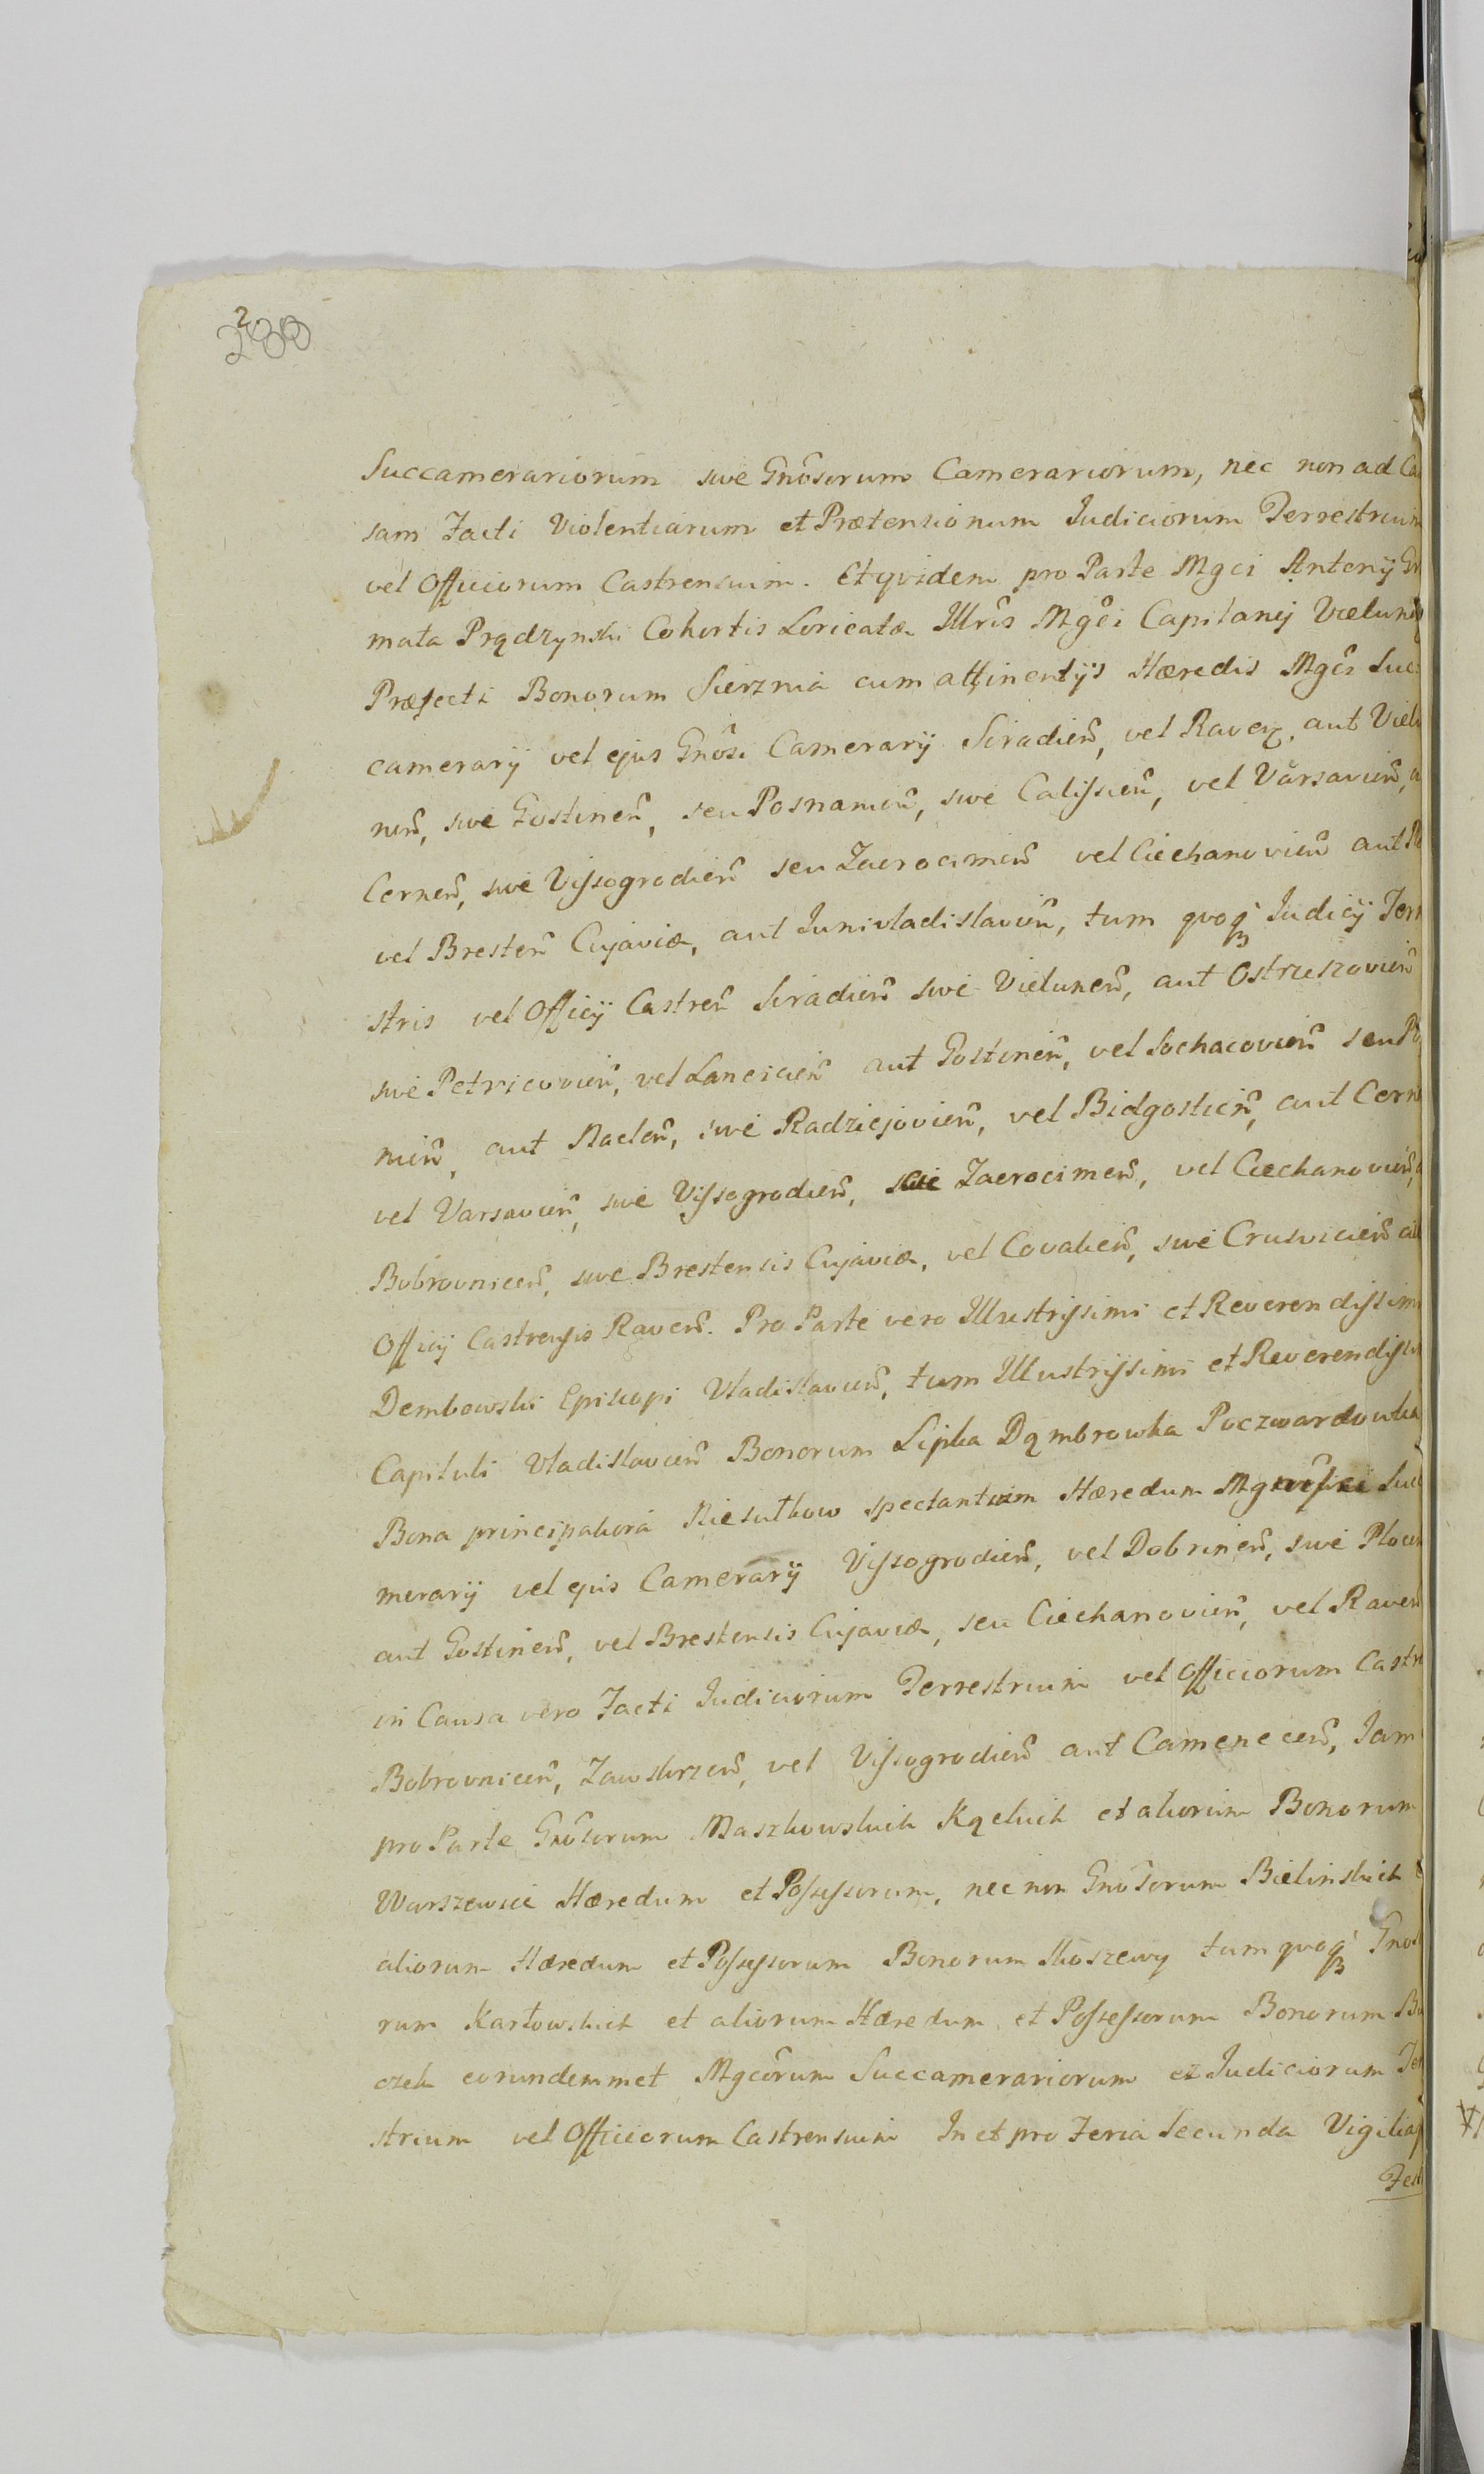 2
200
Succamerariorum sive Gnôsorum Camerariorum, nec non ad Ca
sam Facti Violentiarum et Prætensionum Iudiciorum Terrestrium
vel Officiorum Castrensium. Et qvidem pro Parte Mgci Antonÿ Gr
mata Prądzynski Cohortis Loricatæ Illrîs Mgĉi Capitanej Vielun
Præfecti Bonorum Sierznia cum attinentÿs Hæredis Mgĉi Suc
camerarÿ vel ejus Gnôsi Camerarÿ Siradien̂, vel Raven, aut Vielu
nen̂, sive Gostinen̂, seu Posnanien̂, sive Calissien̂, vel Varsavien̂, a
Cernen̂, sive Vissogrodien̂ seu Zacrocimen̂ vel Ciechanovien̂ aut
vel Bresten̂ Cujaviæ, aut Junivladislavien̂, tum qvoq́ Iudicÿ Terr
stris vel Officÿ Castren̂ Siradien̂ sive Vielunen̂, aut Ostrzeszovien̂
sive Petricovien̂, vel Lancicien̂ aut Gostinen̂, vel Sochacovien̂ seu
nien̂, aut Naclen̂, sive Radziejovien̂, vel Bidgostien̂, aut Cern
vel Varsavien̂, sive Vissogrodien̂, sive Zacrocimen̂, vel Ciechanovien̂,
Bobrovnicen̂, sive Brestensis Cujaviæ, vel Covalien̂, sive Crusvicien̂
Officÿ Castrensis Raven̂. Pro Parte vero Illustrissimi et Reverendissimi
Dembowski Episcopi Vladislavien̂, tum Illustrissimi et Reverendissi
Capituli Vladislavien̂ Bonorum Lipka Dąmbrowka Poczwardowka
Bona principaliora Niesułkow spectantium Hæredum Suc
merarÿ vel ejus Camerarÿ Vissogrodien̂, vel Dobrinen̂, sive Plocen
aut Gostinen̂, vel Brestensis Cujaviæ, seu Ciechanovien̂, vel Raven̂
in Causa vero Facti Iudiciorum Terrestrium vel Officiorum Castre
Bobrovnicen̂, Zawskrzen̂, vel Vissogrodien̂ aut Camenecen̂, Iam
pro Parte Gnôsorum Maszkowskich Kąckich et aliorum Bonorum
Warszewice Hæredum et Possessorum, nec non Gnôsorum Bielinskich
aliorum Hæredum et Possessorum Bonorum Koszewy tum qvoq́ Gnos
rum Karłowskich et aliorum Hæredum et Possessorum Bonorum
czek eorundemmet Mgcôrum Succamerariorum et Iudiciorum Ter
strium vel Officiorum Castrensium In et pro Feria Secunda Vigilia
Fest